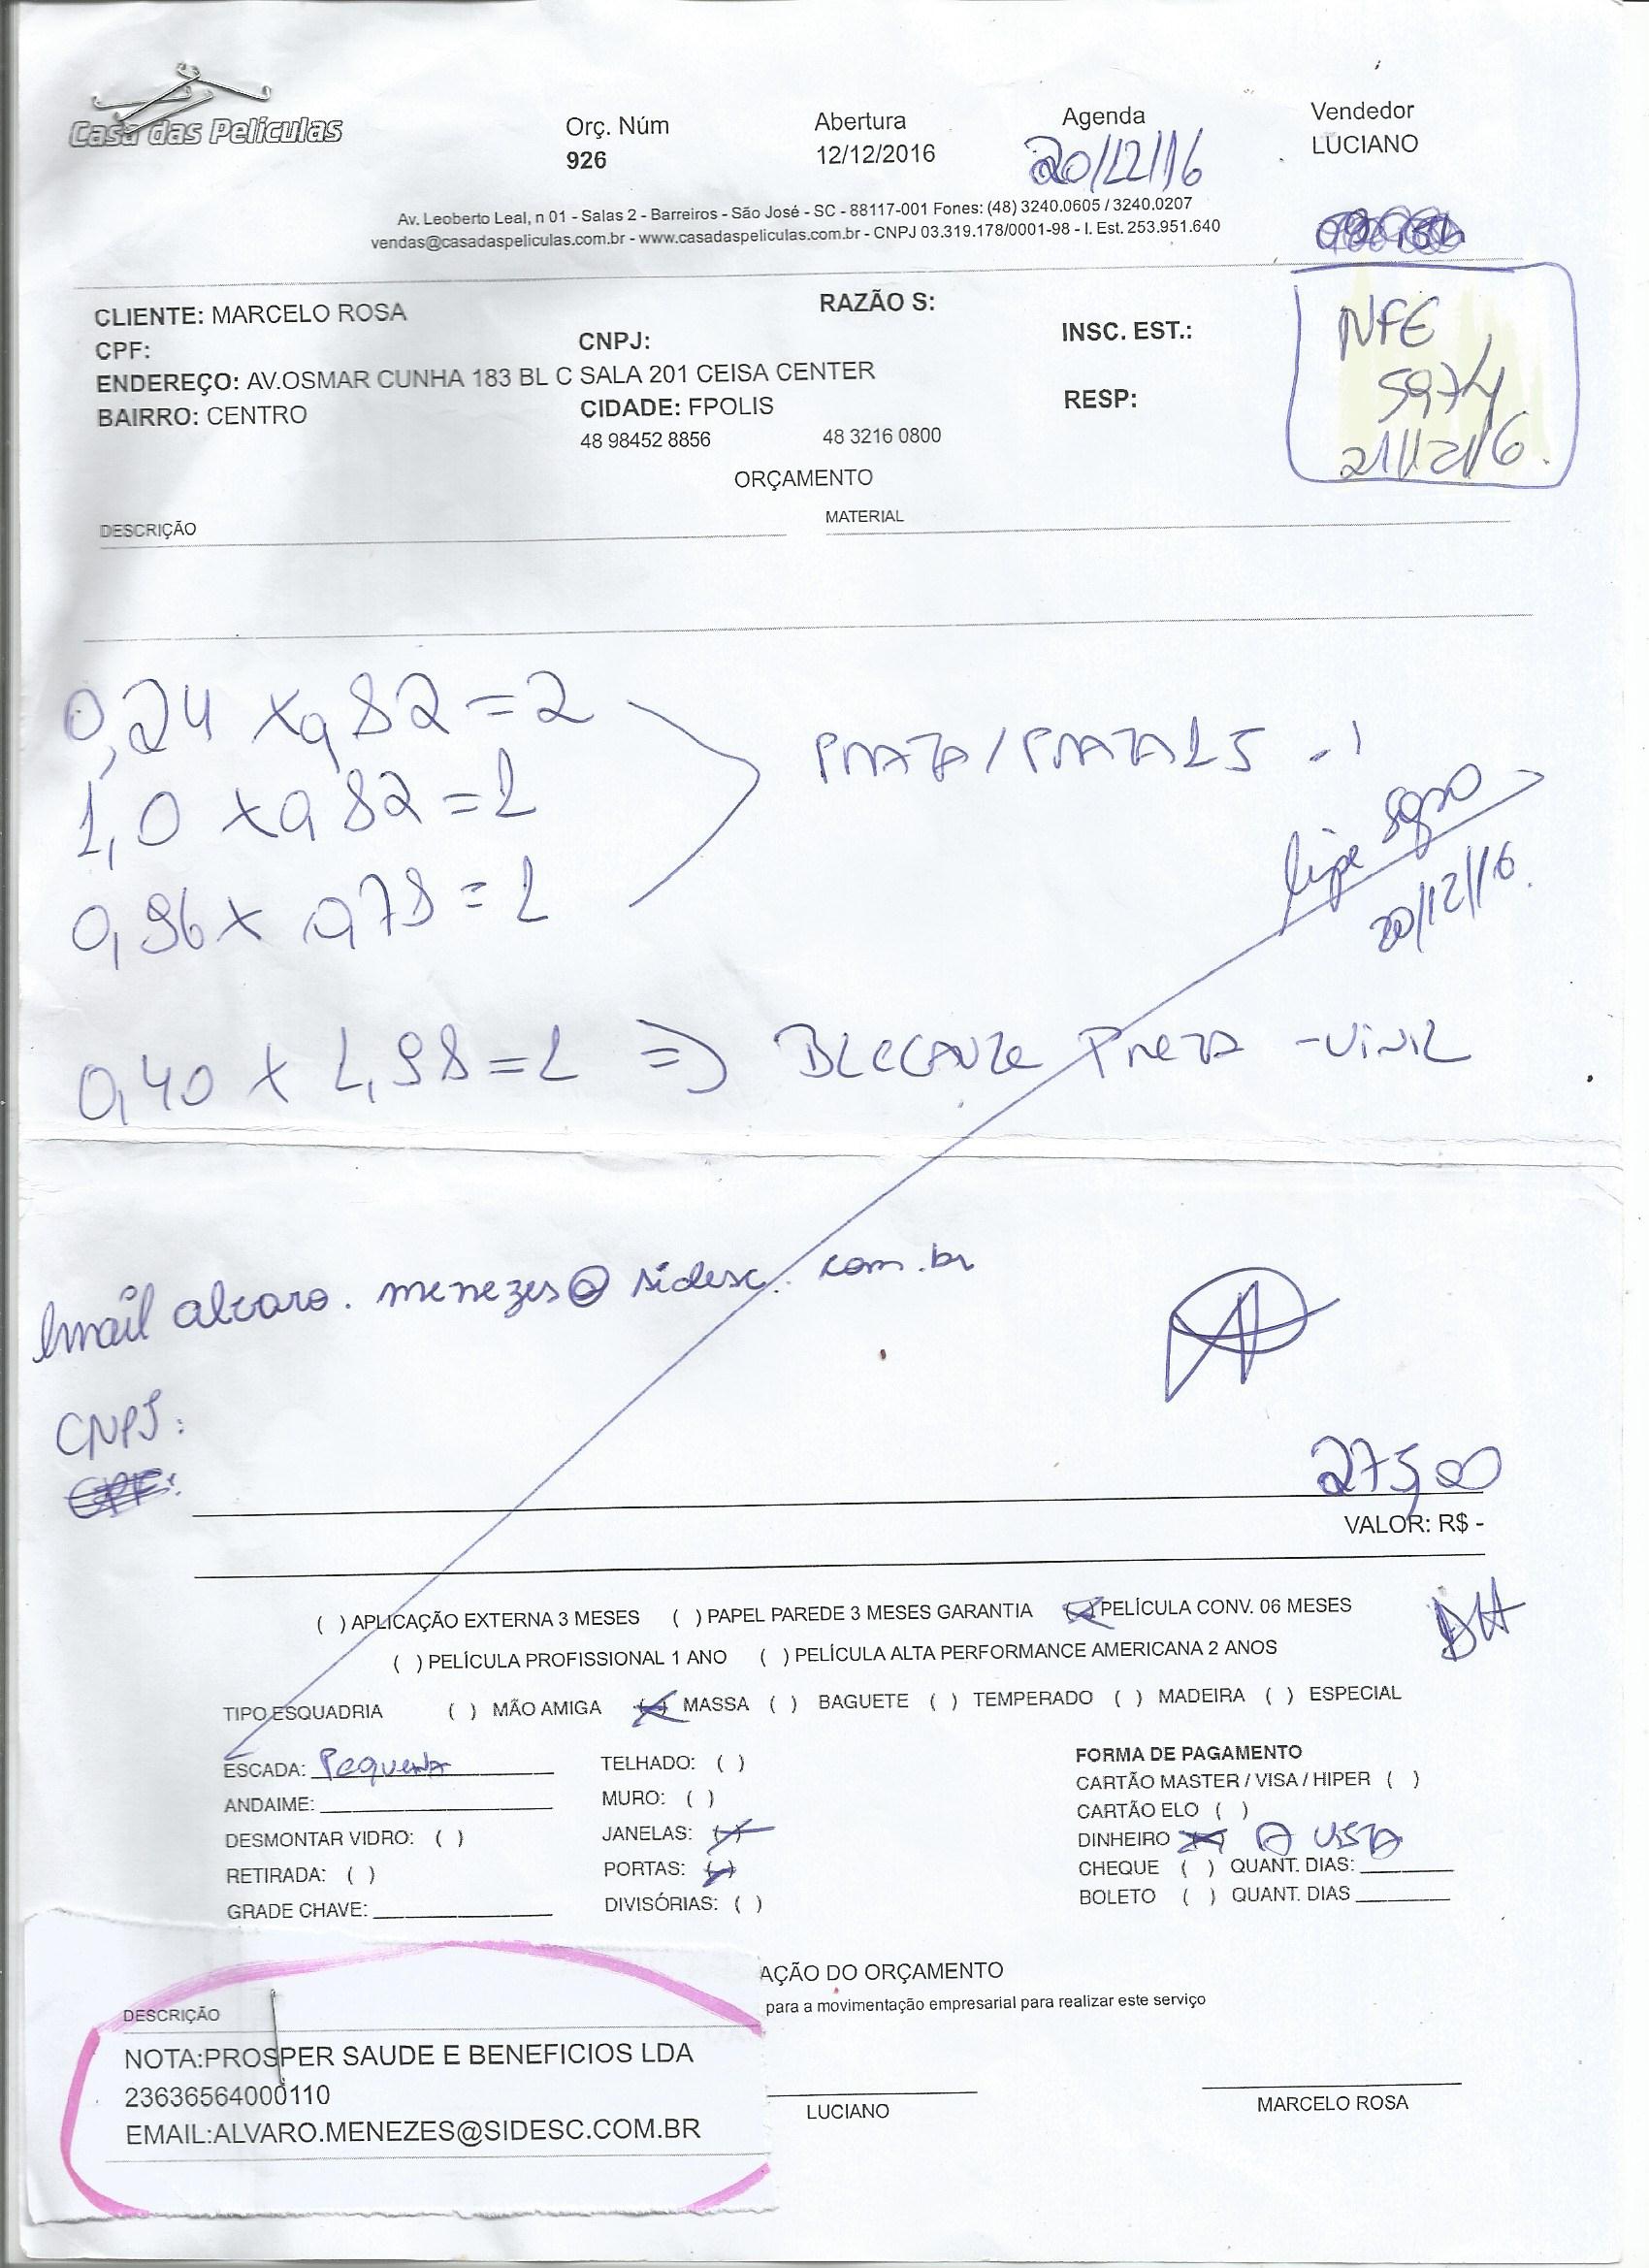 Casa das Películas
Orç. Núm
926
Abertura
12/12/2016
Agenda
20/12/16
Vendedor
LUCIANO
Av. Leoberto Leal, n 01 - Salas 2 - Barreiros - São José - SC - 88117-001 Fones: (48) 3240.0605 / 3240.0207
vendas@casadaspeliculas.com.br - www.casadaspeliculas.com.br - CNPJ 03.319.178/0001-98 - I. Est. 253.951.640
CLIENTE: MARCELO ROSA
RAZÃO S:
CPF:
CNPJ:
INSC. EST.:
ENDEREÇO: AV.OSMAR CUNHA 183 BL C SALA 201 CEISA CENTER
BAIRRO: CENTRO
CIDADE: FPOLIS
RESP:
48 98452 8856
48 3216 0800
NFE
5974
21/12/16.
ORÇAMENTO
DESCRIÇÃO
MATERIAL
0,24 x 0,82 = 2
1,0 x 0,82 = 1
0,96 x 0,78 = 1
PRATA/PRATA 15
20/12/16.
0,40 x 1,98 = 1 => BLECAUTE PRETA - VINIL
Email alvaro.menezes@sidesc.com.br
CNPJ:
CPF:
275,00
VALOR: R$ -
( ) APLICAÇÃO EXTERNA 3 MESES ( ) PAPEL PAREDE 3 MESES GARANTIA (x) PELÍCULA CONV. 06 MESES
( ) PELÍCULA PROFISSIONAL 1 ANO ( ) PELÍCULA ALTA PERFORMANCE AMERICANA 2 ANOS
TIPO ESQUADRIA ( ) MÃO AMIGA (x) MASSA ( ) BAGUETE ( ) TEMPERADO ( ) MADEIRA ( ) ESPECIAL
ESCADA: Pequena
TELHADO: ( )
FORMA DE PAGAMENTO
ANDAIME:
MURO: ( )
CARTÃO MASTER / VISA / HIPER ( )
CARTÃO ELO ( )
DESMONTAR VIDRO: ( )
JANELAS: (x)
DINHEIRO (x) A VISTA
RETIRADA: ( )
PORTAS: (x)
CHEQUE ( ) QUANT. DIAS:
GRADE CHAVE:
DIVISÓRIAS: ( )
BOLETO ( ) QUANT. DIAS
AÇÃO DO ORÇAMENTO
para a movimentação empresarial para realizar este serviço
DESCRIÇÃO
NOTA:PROSPER SAUDE E BENEFICIOS LDA
23636564000110
EMAIL:ALVARO.MENEZES@SIDESC.COM.BR
LUCIANO
MARCELO ROSA